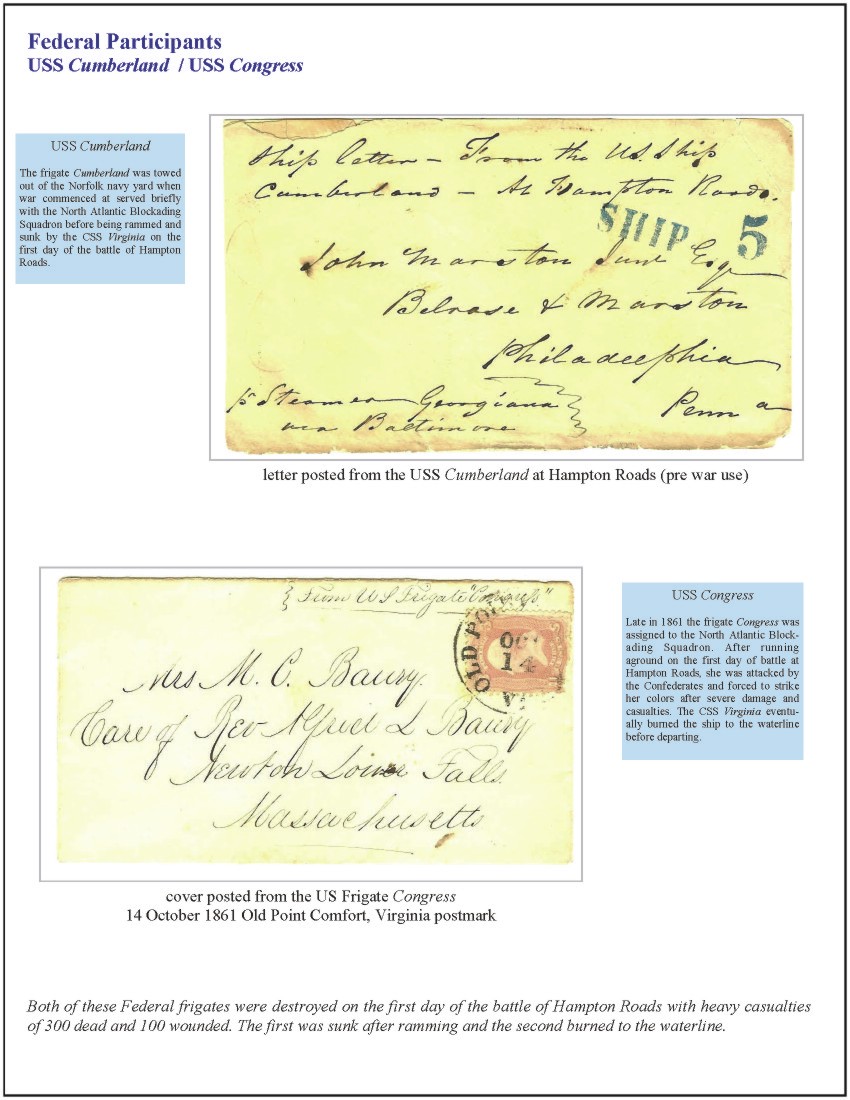 Federal Participants
USS Cumberland / USS Congress
USS Cumberland
The frigate Cumberland was towed
out of the Norfolk navy yard when
war commenced at served briefly
with the North Atlantic Blockading
Squadron before being rammed and
sunk by the CSS Virginia on the
first day of the battle of Hampton
Roads.
Ship letter – From the US Ship
Cumberland – At Hampton Roads.
SHIP 5
John Marston Junr Esq
Belrose & Marston
Philadelphia
Penn a
pr Steamer Georgiana
via Baltimore
letter posted from the USS Cumberland at Hampton Roads (pre war use)
From US Frigate "Congress"
OLD PO
OCT
14
VA
Mrs M. C. Baury.
Care of Rev Alfred L Baury
Newton Lower Falls.
Massachusetts
USS Congress
Late in 1861 the frigate Congress was
assigned to the North Atlantic Block-
ading Squadron. After running
aground on the first day of battle at
Hampton Roads, she was attacked by
the Confederates and forced to strike
her colors after severe damage and
casualties. The CSS Virginia eventu-
ally burned the ship to the waterline
before departing.
cover posted from the US Frigate Congress
14 October 1861 Old Point Comfort, Virginia postmark
Both of these Federal frigates were destroyed on the first day of the battle of Hampton Roads with heavy casualties
of 300 dead and 100 wounded. The first was sunk after ramming and the second burned to the waterline.